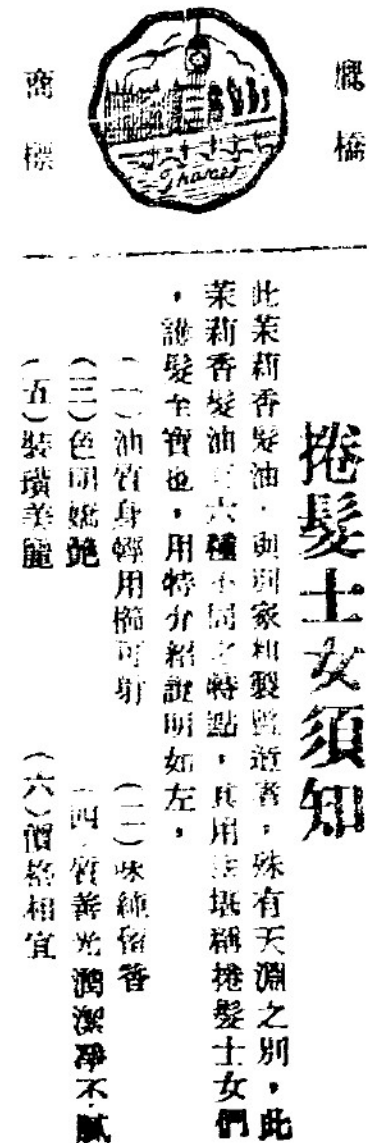 鷹橋
商標
Thames
捲髮士女須知
此茉莉香髮油,與別家粗製濫造者,殊有天淵之別,此
茉莉香髮油有六種不同之特點,其用法堪稱捲髮士女們
,護髮至寶也,用特介紹說明如左,
(一)油質身輕用梳可射
(二)味純留香
(三)色明嬌艷
(四)質善光潤潔淨不膩
(五)裝璜美麗
(六)價格相宜